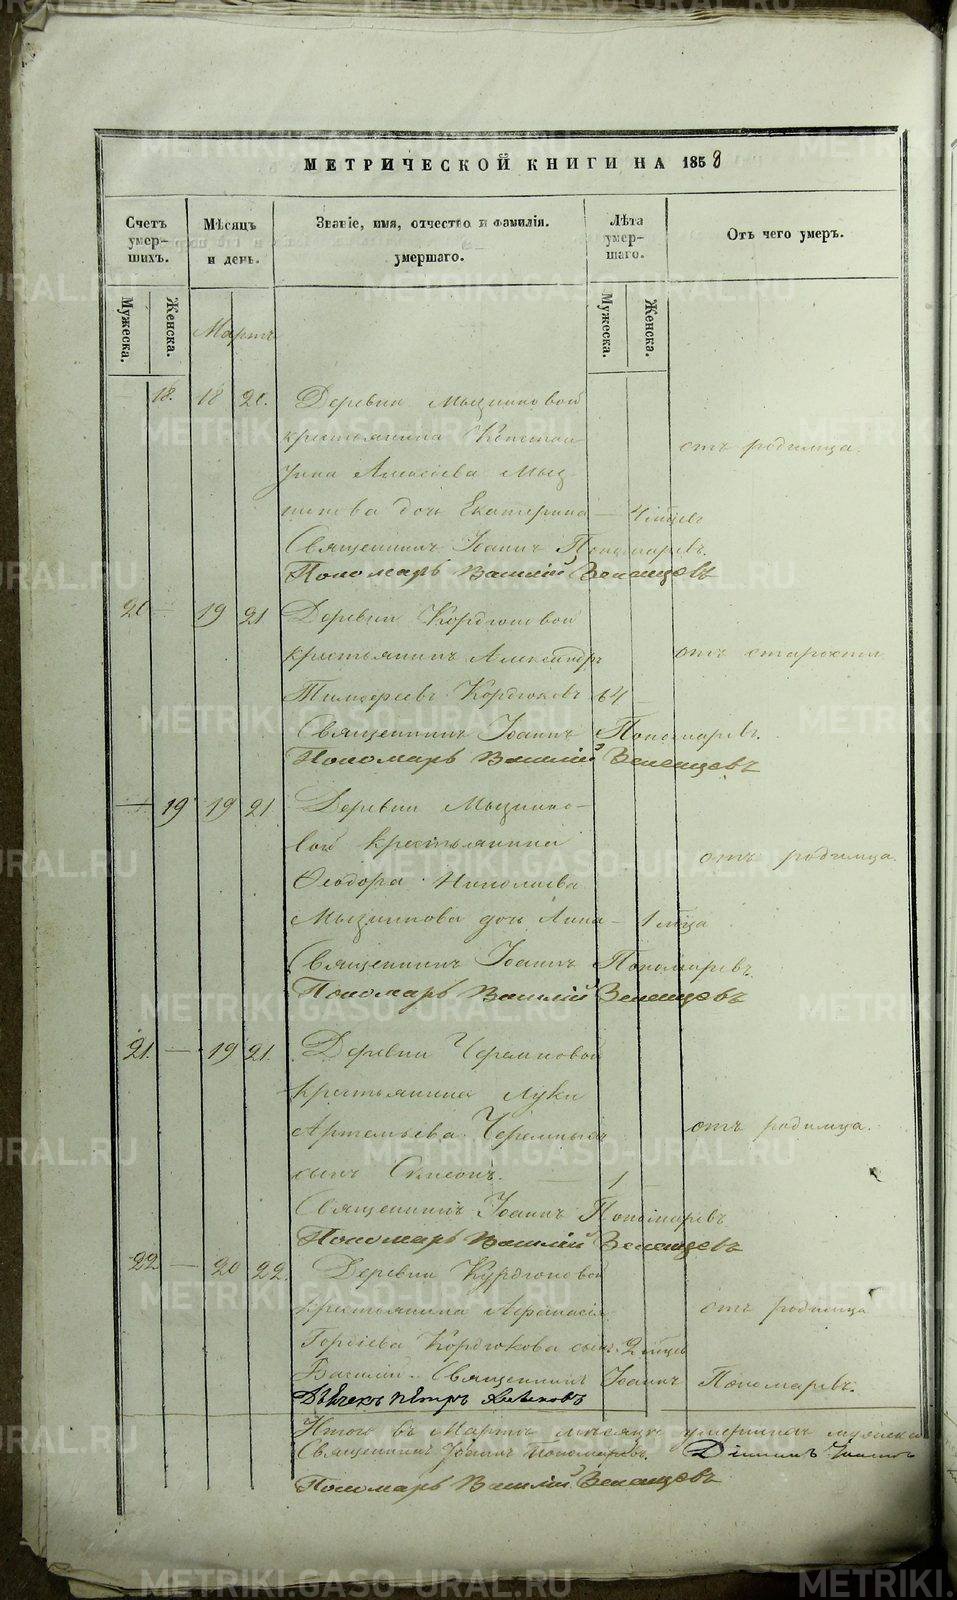 МЕТРИЧЕСКОЙ КНИГИ НА 1858
Счетъ умер-шихъ.
Мѣсяцъ и день.
Званіе, имя, отчество и фамилія. умершаго.
Лѣта умер-шаго.
Отъ чего умеръ.
Мужеска.
Женска.
Мужеска.
Женска.
Мартъ
18. 18 20. Деревни Мызниковой
крестьянина Констан
тина Алексіева Мыз-
никова дочь Екатерина — 4 мѣсец.
отъ родимца.
Священникъ Іоаннъ Пономаревъ.
Пономарь Василій Зеленцовъ
20 — 19 21 Деревни Кордюковой
крестьянинъ Александръ
отъ старости
Тимофеевъ Кордюковъ 64 —
Священникъ Іоаннъ Пономаревъ.
Пономарь Василій Зеленцовъ
— 19 19 21 Деревни Мызнико-
вой крестьянина
отъ родимца.
Феодора Николаева
Мызникова дочь Анна — 1 мѣсца
Священникъ Іоаннъ Пономаревъ.
Пономарь Василій Зеленцовъ
21. — 19 21. Деревни Черемновой
крестьянина Луки
Артемьева Черемныхъ
отъ родимца.
сынъ Симеонъ. — 1 —
Священникъ Іоаннъ Пономаревъ
Пономарь Василій Зеленцовъ
22 — 20 22. Деревни Курдюковой
крестьянина Афанасія
отъ родимца
Гордіева Кордюкова сынъ 2 мѣсц
Василій. Священникъ Іоаннъ Пономаревъ.
Дьячекъ Петръ
Итого въ Мартѣ мѣсяцѣ умершихъ мужеска
Священникъ Іоаннъ Пономаревъ. Діаконъ Іоаннъ
Пономарь Василій Зеленцовъ
METRIKI.GASO-URAL.RU